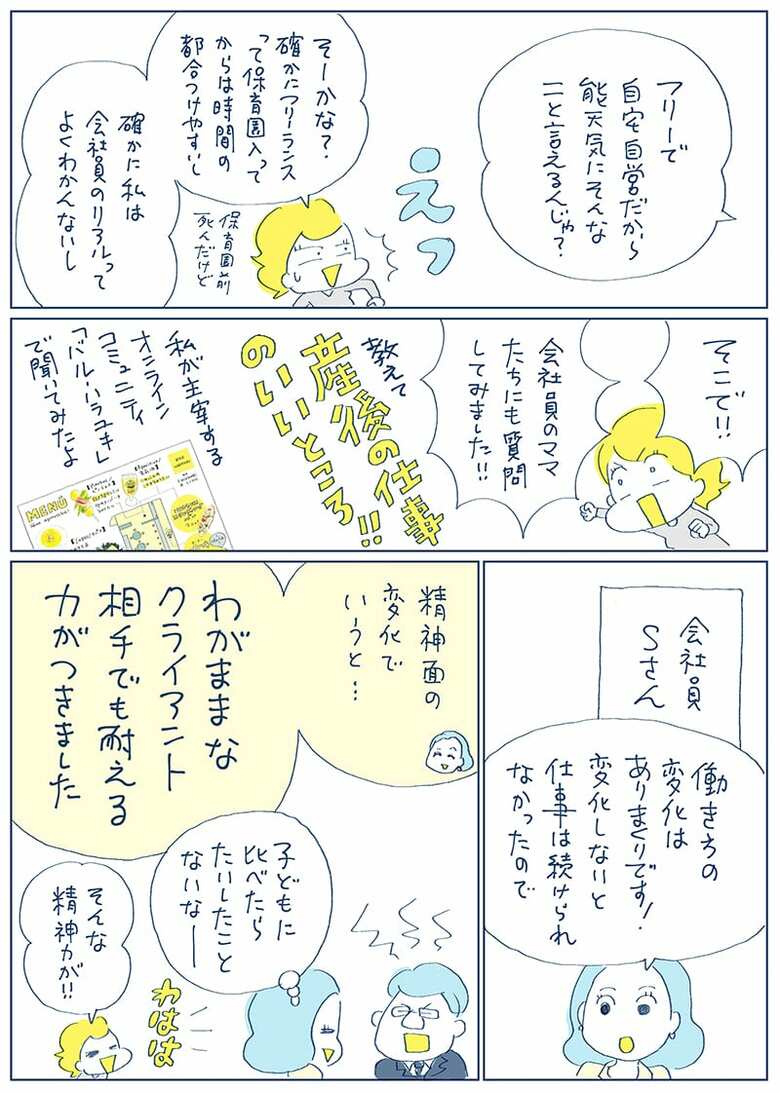 フリーで
自宅自営だから
能天気にそんな
こと言えるんじゃ?
えっ
そーかな?
確かにフリーランス
って保育園入って
からは時間の
都合つけやすいし
保育園前
死んだけど
確かに私は
会社員のリアルって
よくわかんないし
そこで!!
会社員のママ
たちにも質問
してみました!!
教えて
産後の仕事
のいいところ!!
私が主宰する
オンライン
コミュニティ
「バル・ハラユキ」
で聞いてみたよ
MENÚ
会社員
Sさん
働き方の
変化は
ありまくりです!
変化しないと
仕事は続けられ
なかったので
精神面の
変化で
いうと…
わがままな
クライアント
相手でも耐える
力がつきました
子どもに
比べたら
たいしたこと
ないなー
わはは
そんな
精神力が!!